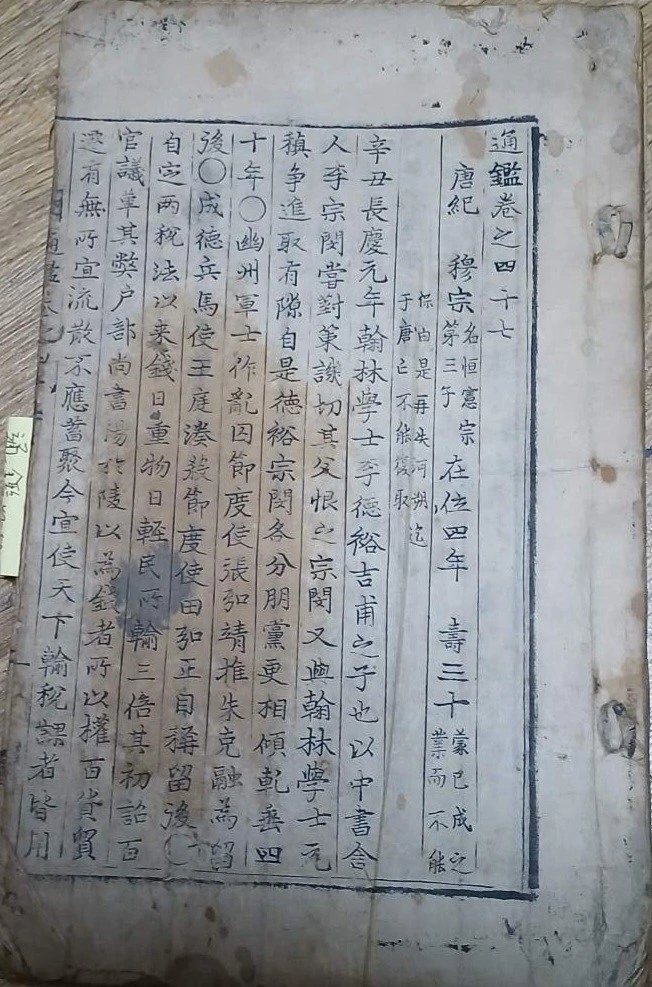 通鑑卷之四十七
唐紀 穆宗 名恒憲宗第三子 在位四年 壽三十 蒙已成之業而不能
保由是再失河朔迄于唐亡不能復取
辛丑長慶元年翰林學士李德裕吉甫之子也以中書舍
人李宗閔嘗對策譏切其父恨之宗閔又與翰林學士元
稹爭進取有隙自是德裕宗閔各分朋黨更相傾軋垂四
十年○幽州軍士作亂囚節度使張弘靖推朱克融為留
後○成德兵馬使王庭湊殺節度使田弘正自稱留後○
自定两稅法以来錢日重物日輕民所輸三倍其初詔百
官議革其弊户部尚書楊於陵以為錢者所以權百貨貿
遷有無所宜流散不應蓄聚今宜使天下輸稅課者皆用
通鑑卷之
通鑑